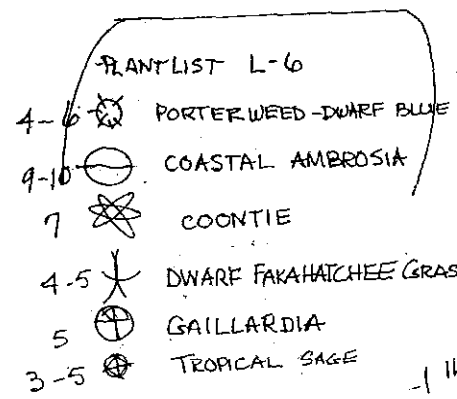 PLANTLIST L-6
4-6 PORTERWEED-DWARF BLUE
9-10 COASTAL AMBROSIA
7 COONTIE
4-5 DWARF FAKAHATCHEE GRAS
5 GAILLARDIA
3-5 TROPICAL SAGE
-1"